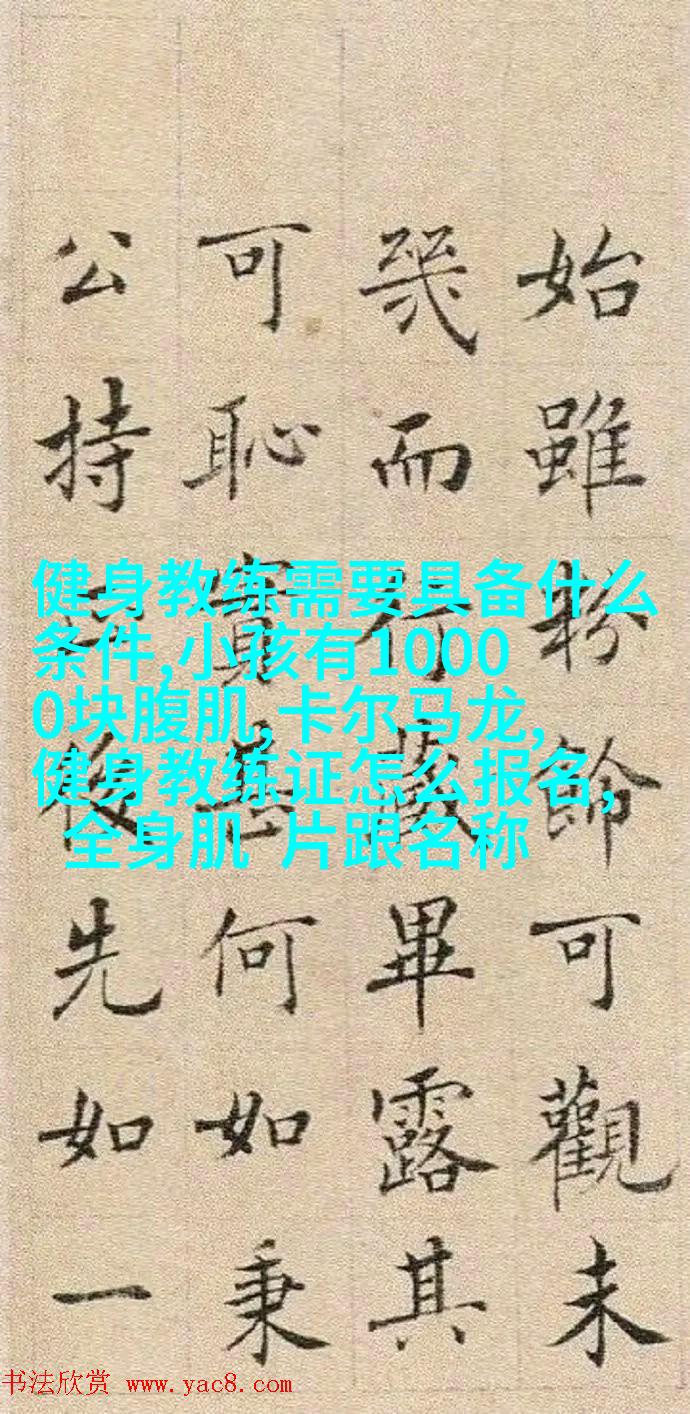 始雖粉飾可觀未
幾而行藏畢露其
可恥實甚何如秉
公持後先如一
健身教练需要具备什么
条件,小孩有1000
0块腹肌,卡尔马龙,
健身教练证怎么报名,
全身肌 片跟名称
书法欣赏 www.yac8.com